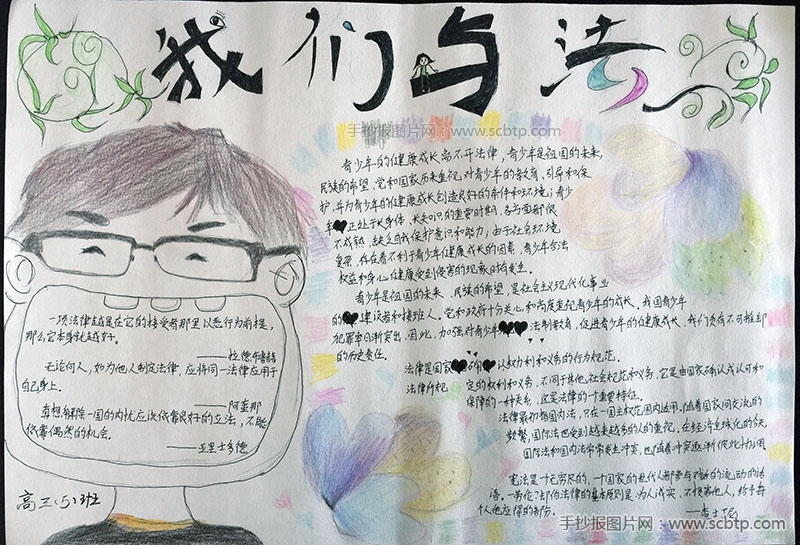 我们与法
手抄报图片网：www.scbtp.com
青少年的健康成长离不开法律，青少年是祖国的未来，
民族的希望。党和国家历来重视对青少年的教育、引导和保
护，并为青少年的健康成长创造良好的条件和环境；青少
年正处于长身体、长知识的重要时期，各方面都很
不成熟，缺乏自我保护意识和能力；由于社会环境
复杂，存在着不利于青少年健康成长的因素，青少年合法
权益和身心健康受到侵害的现象时有发生。
青少年是祖国的未来、民族的希望，是社会主义现代化事业
的建设者和接班人，党和政府十分关心和高度重视青少年的成长，我国青少年
犯罪率日渐突出，因此，加强对青少年法制教育，促进青少年的健康成长，我们负有不可推卸
的历史责任。
法律是国家确认权利和义务的行为规范。
法律所规定的权利和义务，不同于其他社会规范和义务，它是由国家确认或认可和
保障的一种关系，这是法律的一个重要特征。
法律最初指国内法，只在一国主权范围内适用，随着国家间交流的
频繁，国际法也受到越来越多的人的重视，在经济全球化的今天，
国际法和国内法常常发生冲突，也随着冲突逐渐
宪法是一个无穷尽的、一个国家的世代人都参与对话的流动的话
语。—劳伦·却伯法律的基本原则是：为人诚实，不损害他人，给予每
个人他应得的部分。
——查士丁尼
一项法律越是在它的接受者那里以恶行为前提，
那么它本身就越好。
——拉德布鲁赫
无论何人，如为他人制定法律，应将同一法律应用于
自己身上。
——阿奎那
要想解除一国的内忧应该依靠良好的立法，不能
依靠偶然的机会。
——亚里士多德
高三(5)班
手抄报图片网：www.scbtp.com